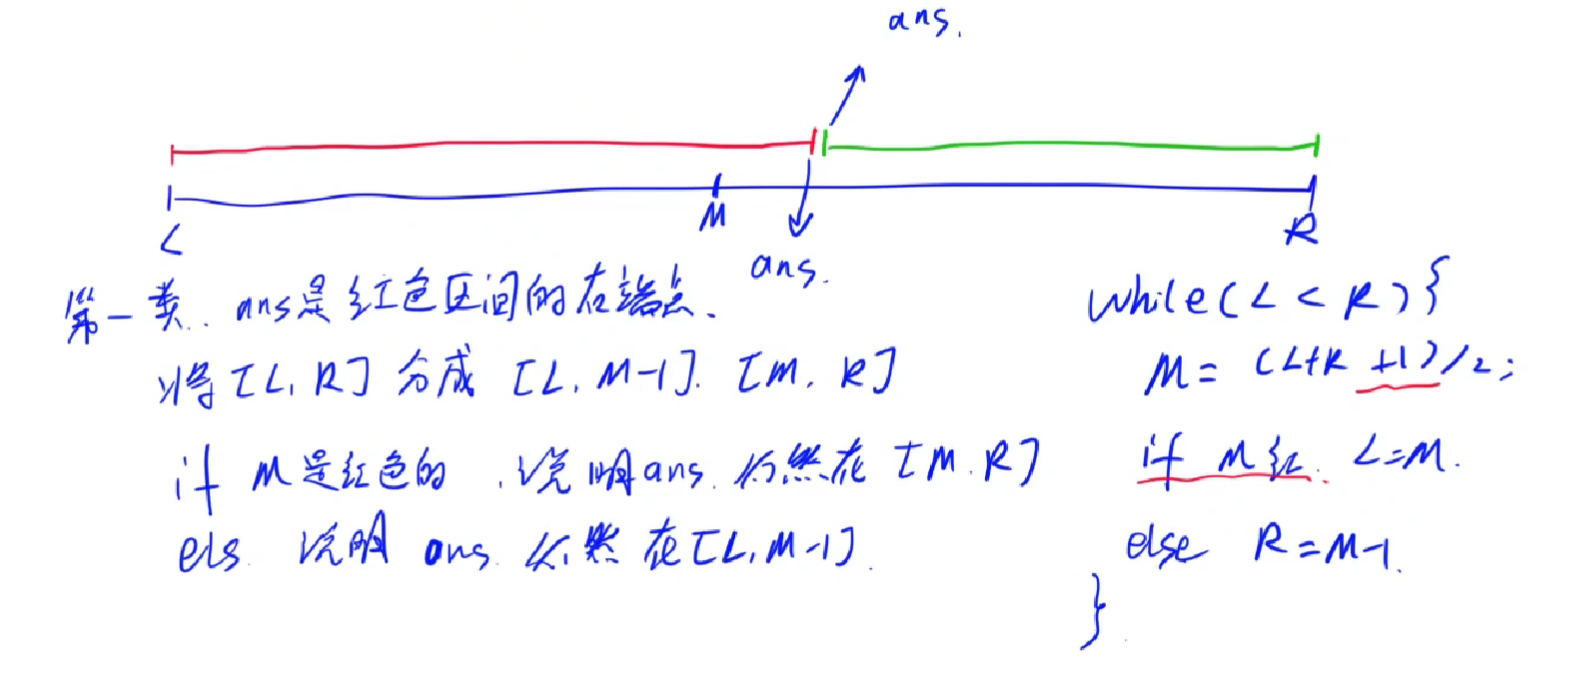 ans.
L M R
ans.
第一类. ans是红色区间的右端点.
将[L, R] 分成 [L, M-1]. [M, R]
if M是红色的, 说明ans 仍然在 [M. R]
els. 说明 ans 仍然在[L, M-1].
while(L < R){
M = (L+R +1)/2;
if M红. L=M.
else R=M-1.
}